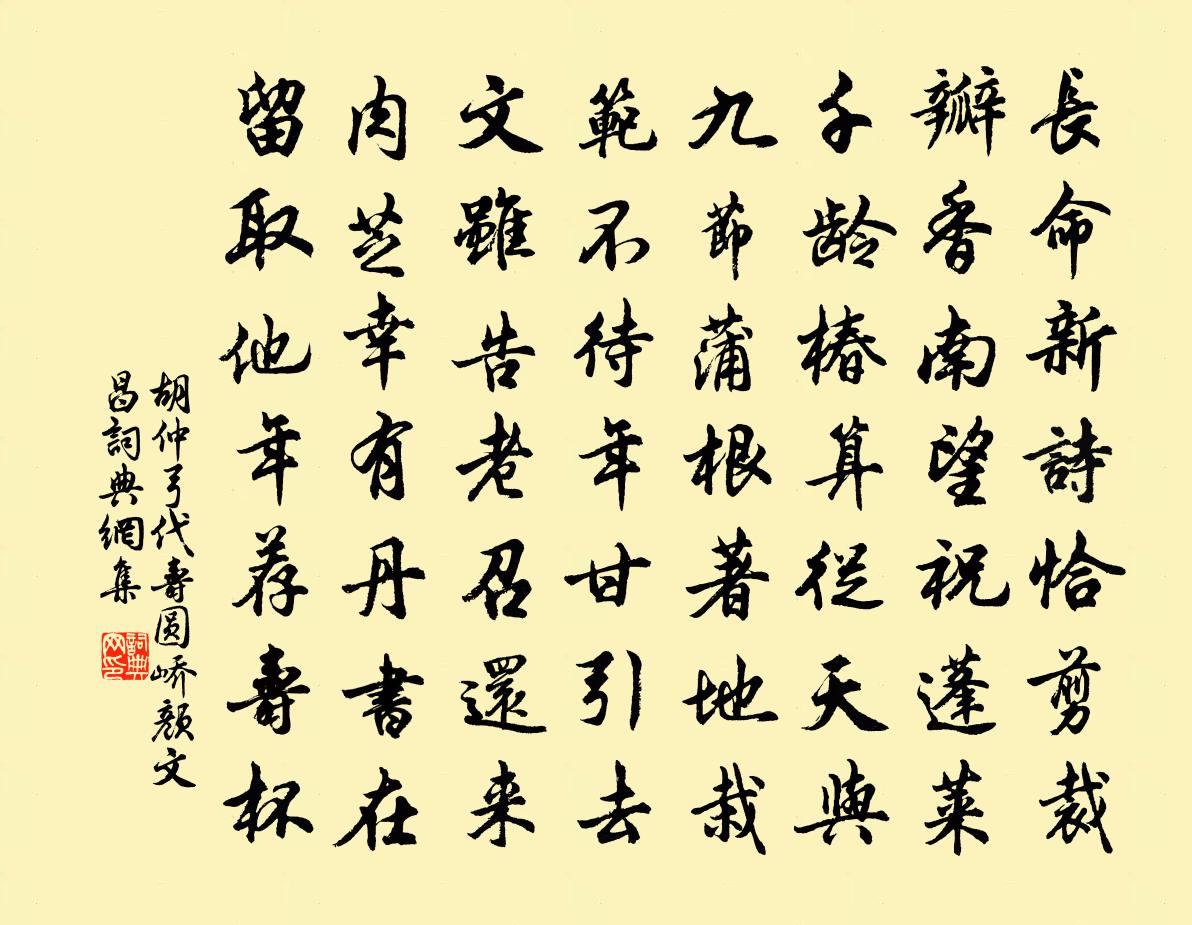 長命新詩恰剪裁
瓣香南望祝蓬萊
千龄椿算從天與
九節蒲根著地栽
範不待年甘引去
文雖告老召還来
肉芝幸有丹書在
留取他年荐壽杯
胡仲弓代壽圆嶠颜文
昌詞典網集
詞典网印